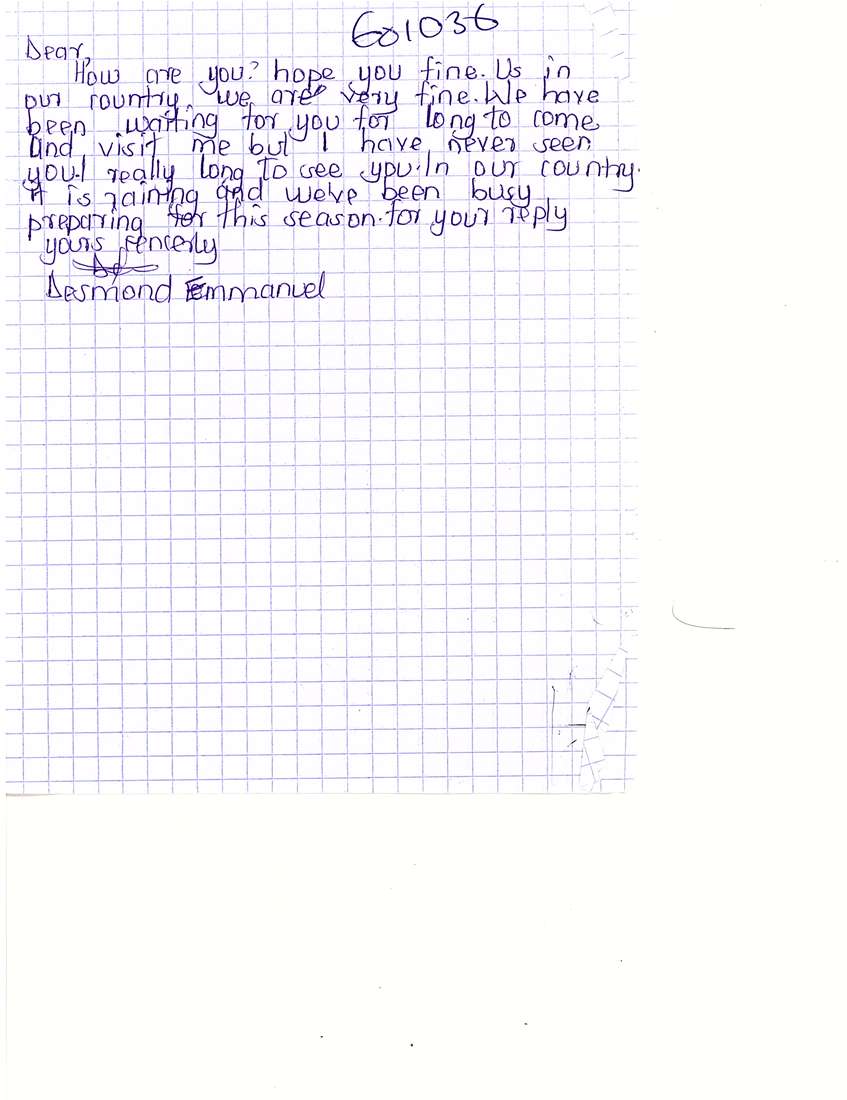 601036
Dear,
How are you? hope you fine. Us in
our country, we are very fine. We have
been waiting for you for long to come
and visit me but I have never seen
you. I really long to see you. In our country.
it is raining and we've been busy
preparing for this season. for your reply
yours sencerly
Desmond Emmanuel